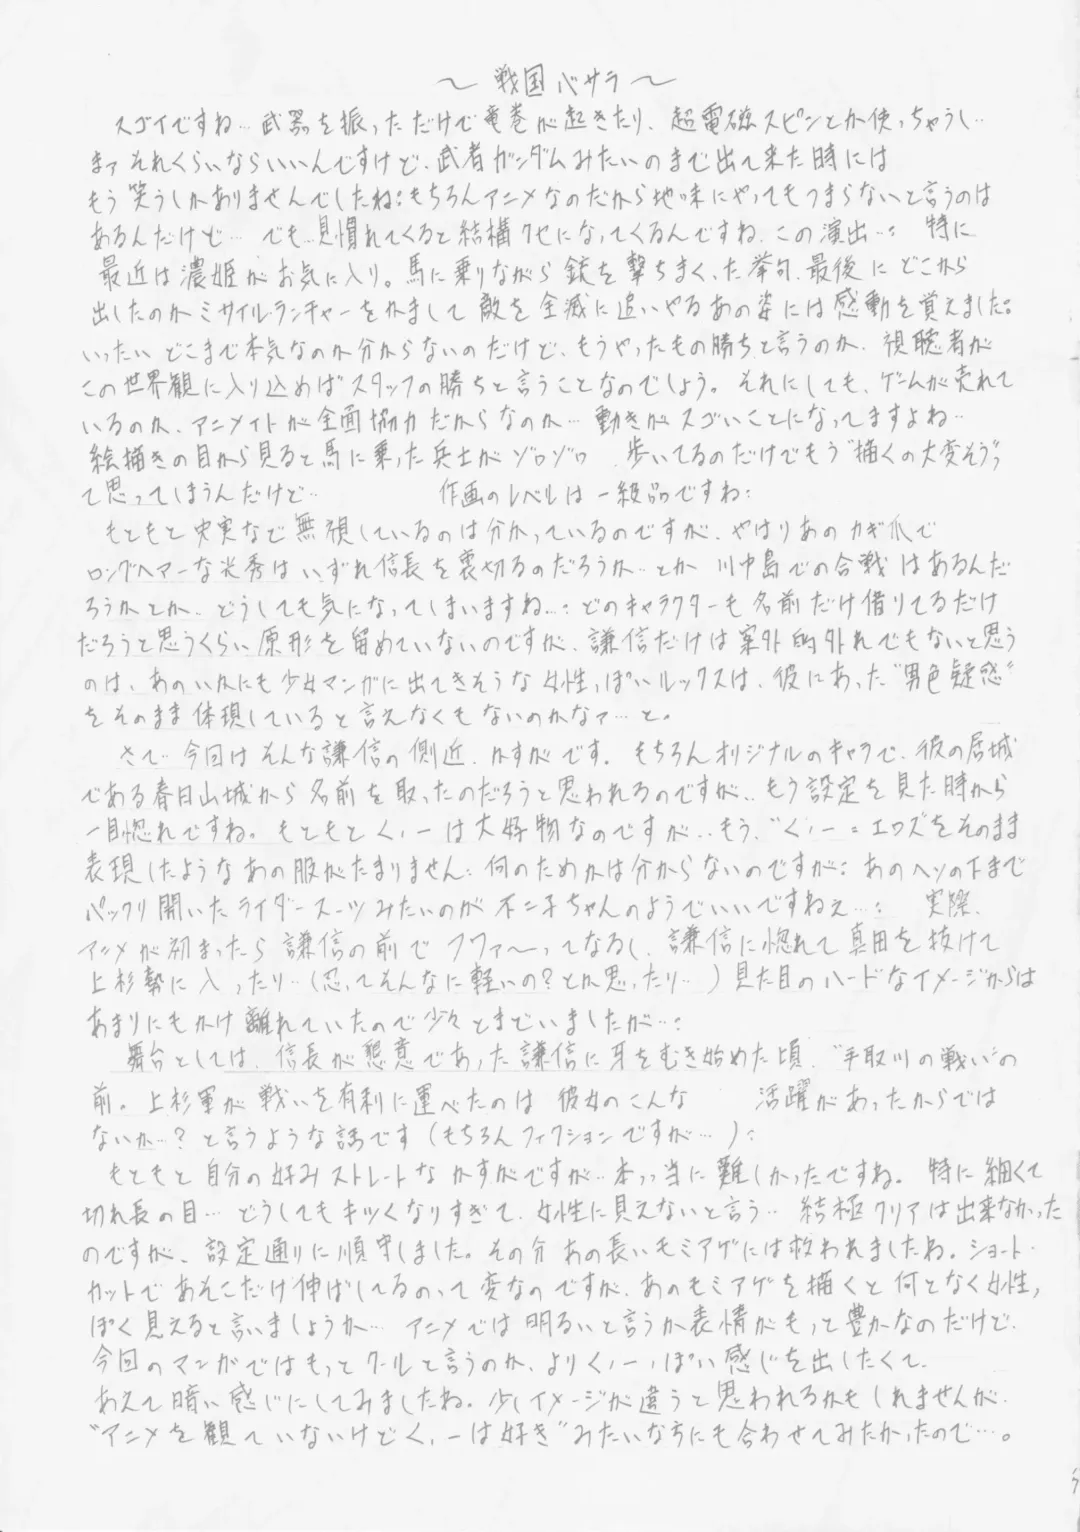 ～ 戦国バサラ ～
スゴイですね… 武器を振っただけで竜巻が起きたり、超電磁スピンとか使っちゃうし…
まァ それくらいならいいんですけど、武者ガンダムみたいのまで出て来た時には
もう笑うしかありませんでしたね: もちろんアニメなのだから地味にやってもつまらないと言うのは
あるんだけど… でも…見慣れてくると結構クセになってくるんですね、この演出…: 特に
最近は濃姫がお気に入り。馬に乗りながら銃を撃ちまくった挙句、最後にどこから
出したのかミサイルランチャーをかまして敵を全滅に追いやるあの姿には感動を覚えました。
いったいどこまで本気なのか分からないのだけど、もうやったもの勝ちと言うのか、視聴者が
この世界観に入り込めばスタッフの勝ちと言うことなのでしょう。それにしても、ゲームが売れて
いるのか、アニメイトが全面協力だからなのか… 動きがスゴいことになってますよね…
絵描きの目から見ると馬に乗った兵士がゾロゾロ 歩いてるのだけでもう“描くの大変そう”
て思ってしまうんだけど… 作画のレベルは一級品ですね:
もともと史実など無視しているのは分かっているのですが、やはりあのカギ爪で
ロングヘアーな光秀はいずれ信長を裏切るのだろうか…とか 川中島での合戦はあるんだ
ろうかとか… どうしても気になってしまいますね…: どのキャラクターも名前だけ借りてるだけ
だろうと思うくらい原形を留めていないのですが、謙信だけは案外的外れでもないと思う
のは、あのいかにも少女マンガに出てきそうな女性っぽいルックスは、彼にあった“男色疑惑”
をそのまま体現していると言えなくもないのかなァ…と。
さて 今回はそんな謙信の側近、かすがです。もちろんオリジナルのキャラで、彼の居城
である春日山城から名前を取ったのだろうと思われるのですが… もう設定を見た時から
一目惚れですね。もともとくノ一は大好物なのですが… もう、“くノ一 = エロス”をそのまま
表現したようなあの服がたまりません: 何のためかは分からないのですが: あのヘソの下まで
パックリ開いたライダースーツみたいのが不二子ちゃんのようでいいですねェ…: 実際、
アニメが初まったら謙信の前でフワァ～ってなるし、謙信に惚れて真田を抜けて
上杉勢に入ったり…(忍ってそんなに軽いの?とか思ったり…) 見た目のハードなイメージからは
あまりにもかけ離れていたので少々とまどいましたが…:
舞台としては、信長が懇意であった謙信に牙をむき始めた頃、“手取川の戦い”の
前。上杉軍が戦いを有利に運べたのは 彼女のこんな 活躍があったからでは
ないか…? と言うような話です(もちろんフィクションですが…):
もともと自分の好みストレートなかすがですが… 本っ当に難しかったですね。特に細くて
切れ長の目… どうしてもキツくなりすぎて、女性に見えないと言う… 結極クリアは出来なかった
のですが、設定通りに順守しました。その分あの長いモミアゲには救われましたね。ショート・
カットであそこだけ伸ばしてるのって変なのですが、あのモミアゲを描くと何となく女性っ
ぽく見えると言いましょうか… アニメでは明るいと言うか表情がもっと豊かなのだけど、
今回のマンガではもっとクールと言うのか、よりくノ一っぽい感じを出したくて、
あえて暗い感じにしてみましたね。少しイメージが違うと思われるかもしれませんが、
“アニメを観ていないけどくノ一は好き”みたいな方にも合わせてみたかったので…。